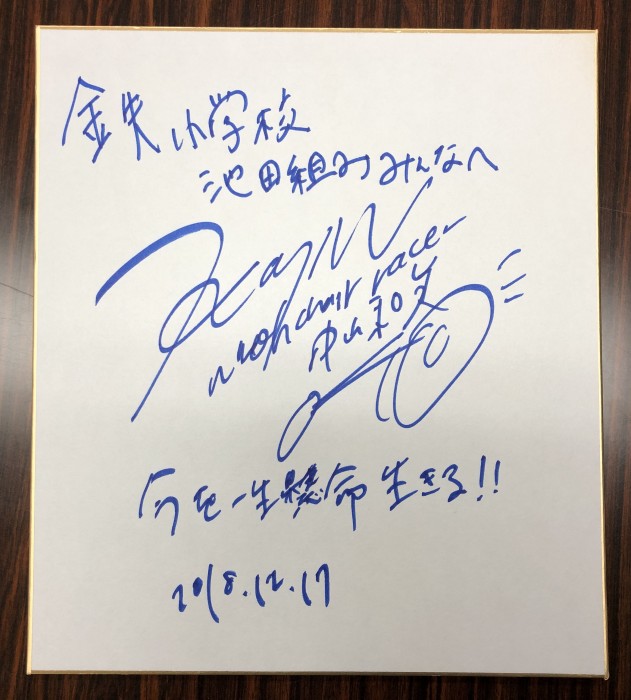 小学校
池田組みみんなへ
Wheelchair racer
中山和美
今を一生懸命生きる!!
2018.12.17